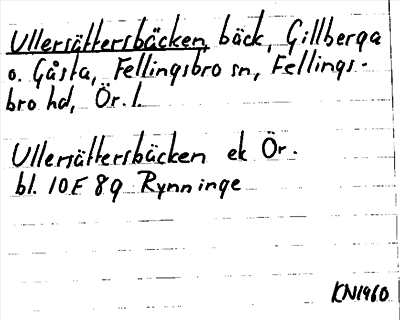 Ullersättersbäcken, bäck, Gillberga
o. Gåsta, Fellingsbro sn, Fellings-
bro hd, Ör. l.
Ullersättersbäcken ek Ör.
bl. 10F 8g Rynninge
KN1960